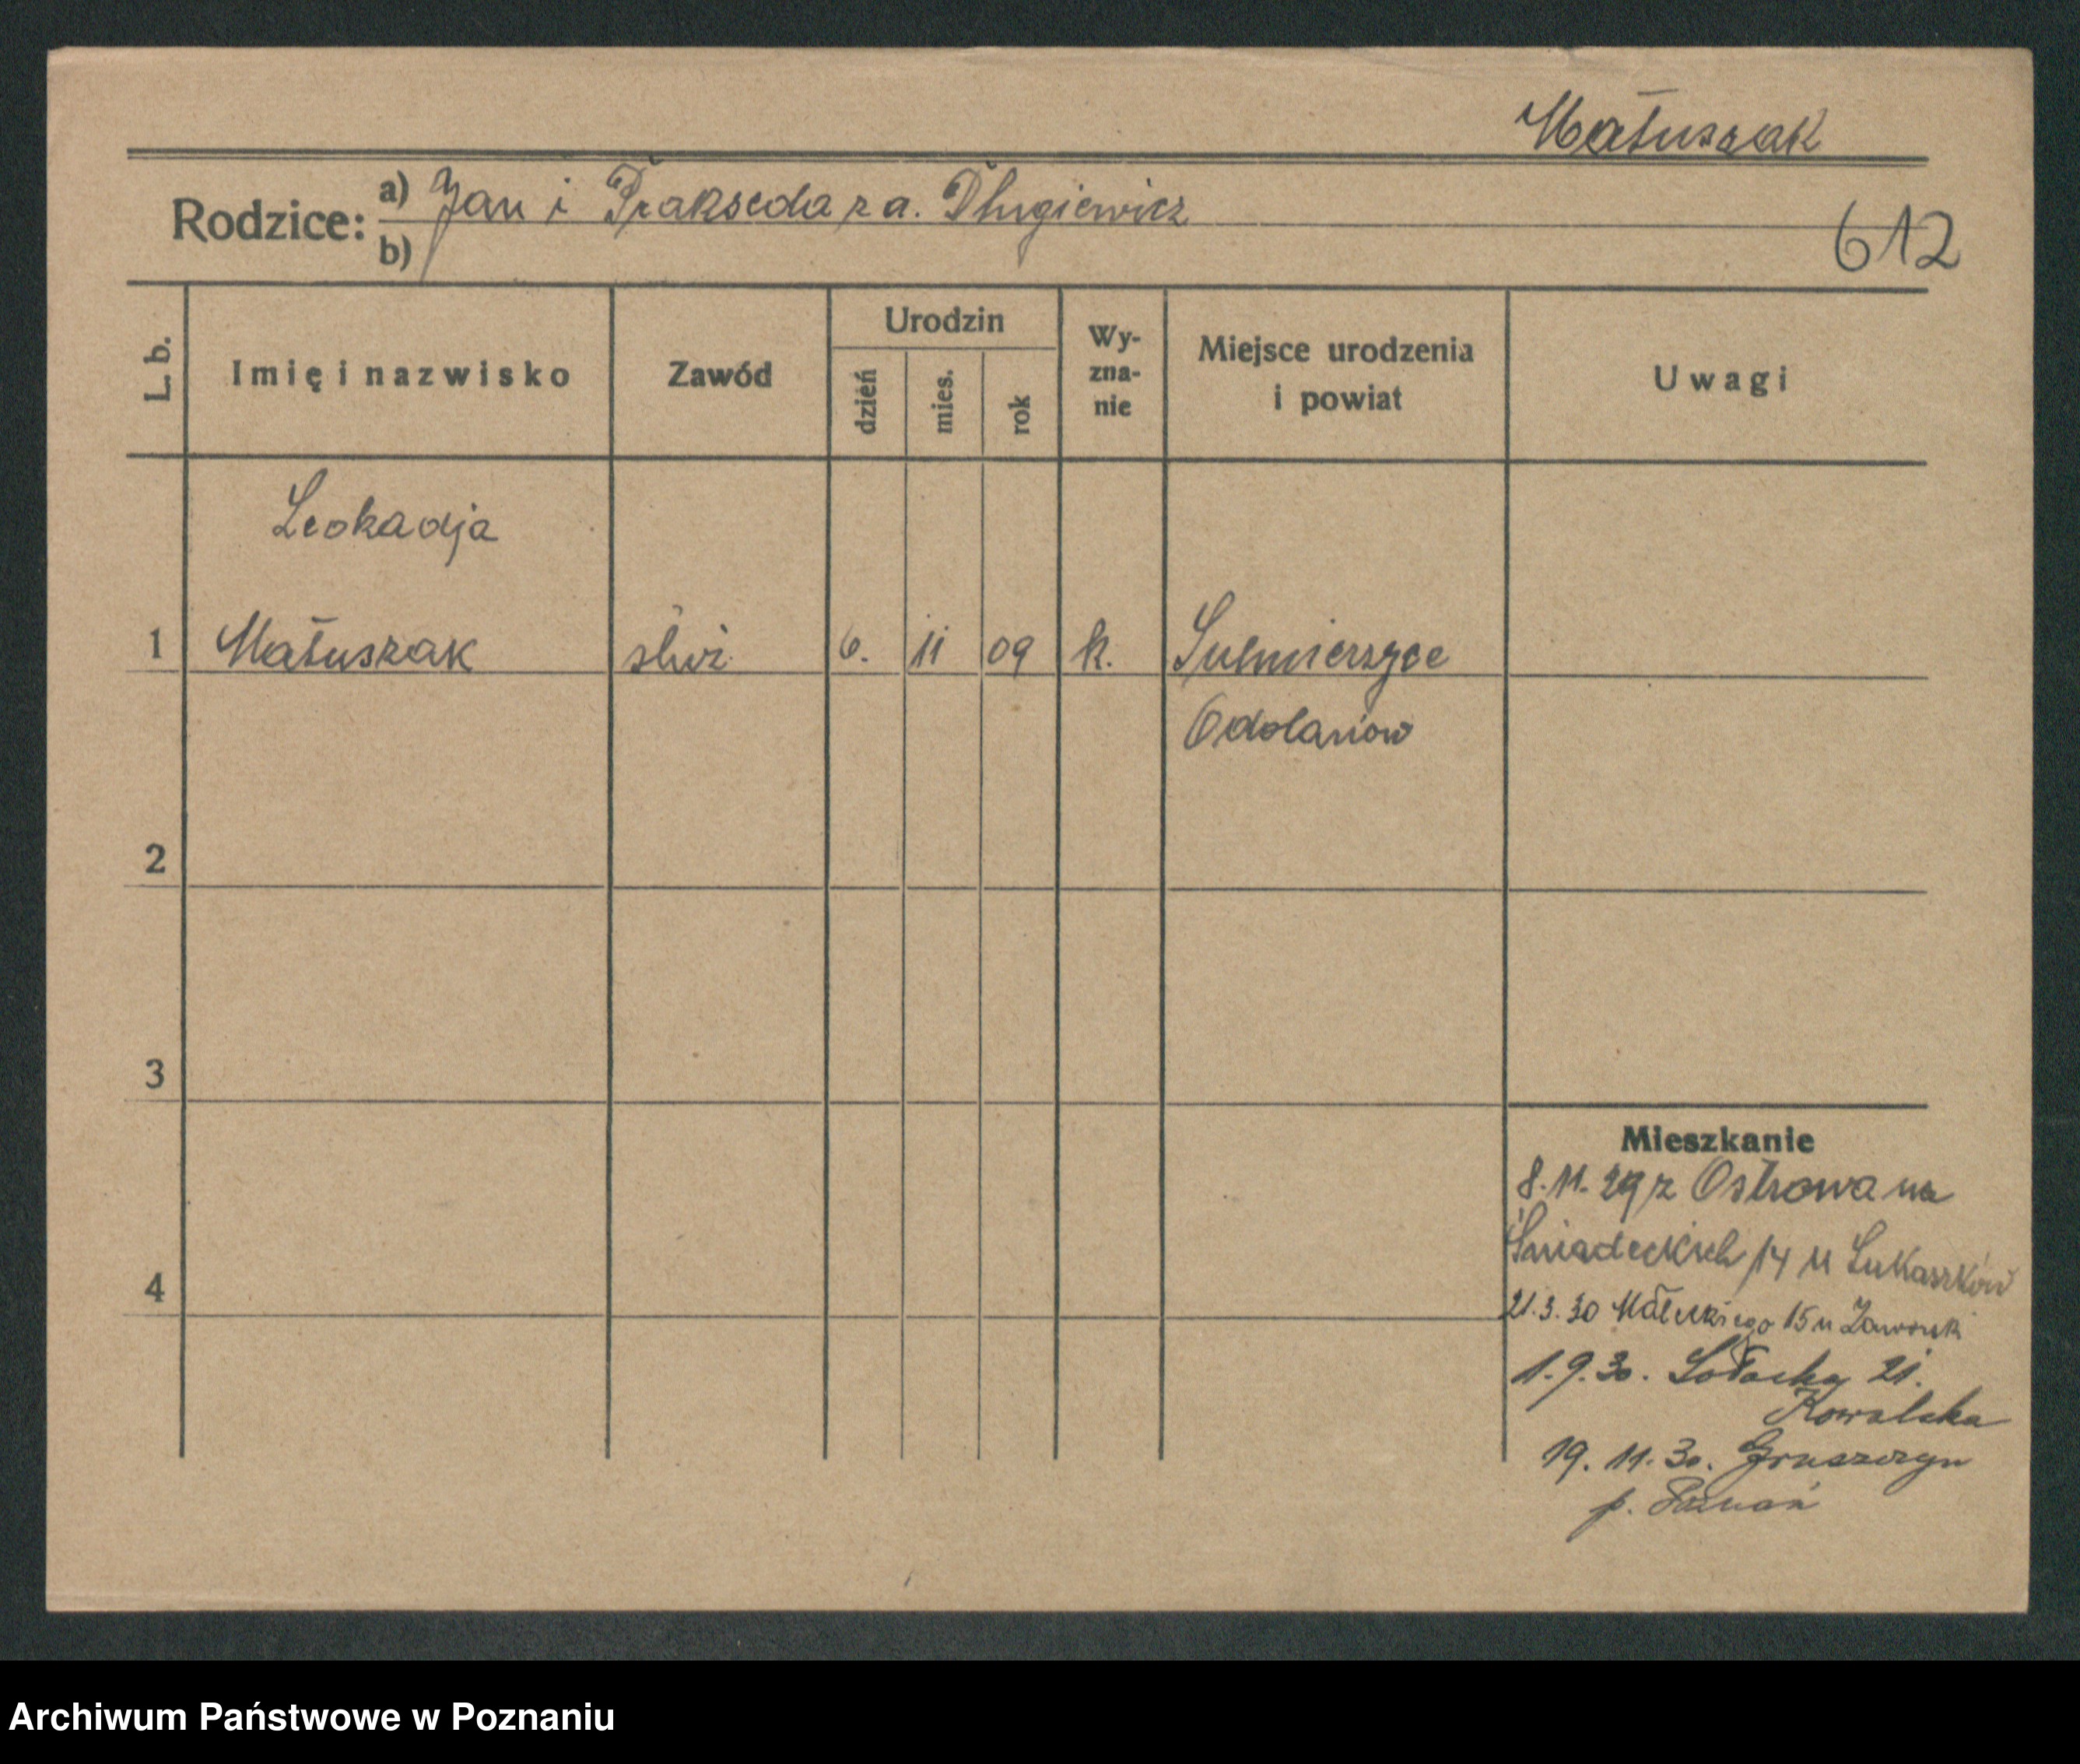 Matuszak
Rodzice: a) Jan i Prakseda z d. Długiewicz
b)
612
L. b.
Imię i nazwisko
Zawód
Urodzin
dzień
mies.
rok
Wy-
zna-
nie
Miejsce urodzenia
i powiat
Uwagi
Leokadja
1 Matuszak służ. 6. 11 09 k. Sulmierzyce
Odolanów
2
3
4
Mieszkanie
8.11.29 z Ostrowa na
Śniadeckich 14 u Łukaszków
21.3.30 Małeckiego 15 u
1.9.30. Sołacka 21.
Kowalska
19.11.30. Gruszczyn
p. Poznań
Archiwum Państwowe w Poznaniu